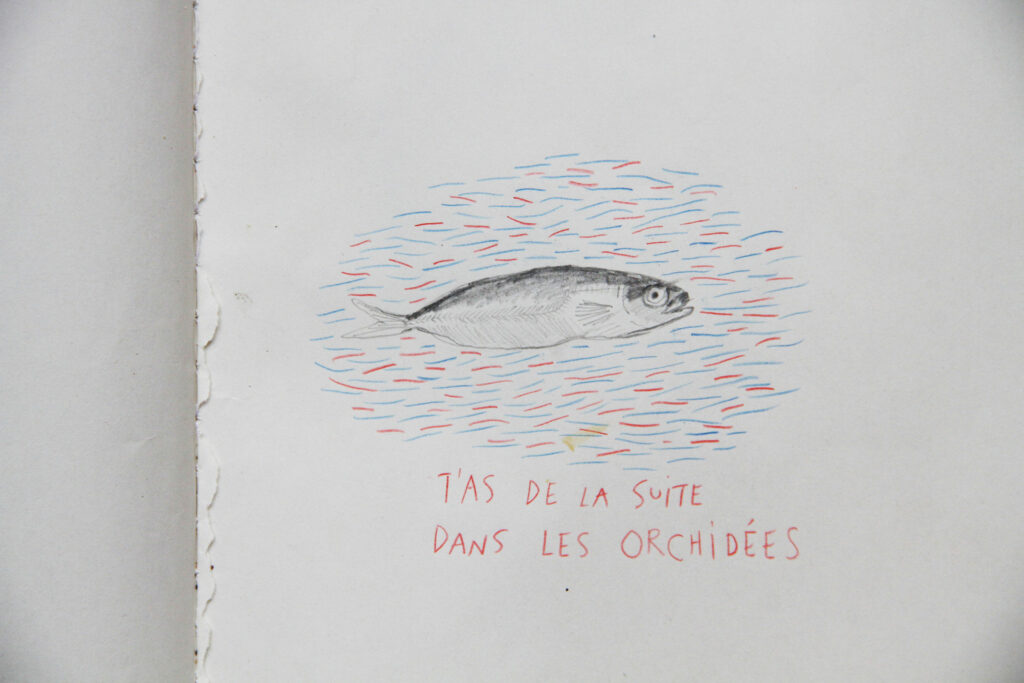 T'AS DE LA SUiTE
DANS LES ORCHiDÉES